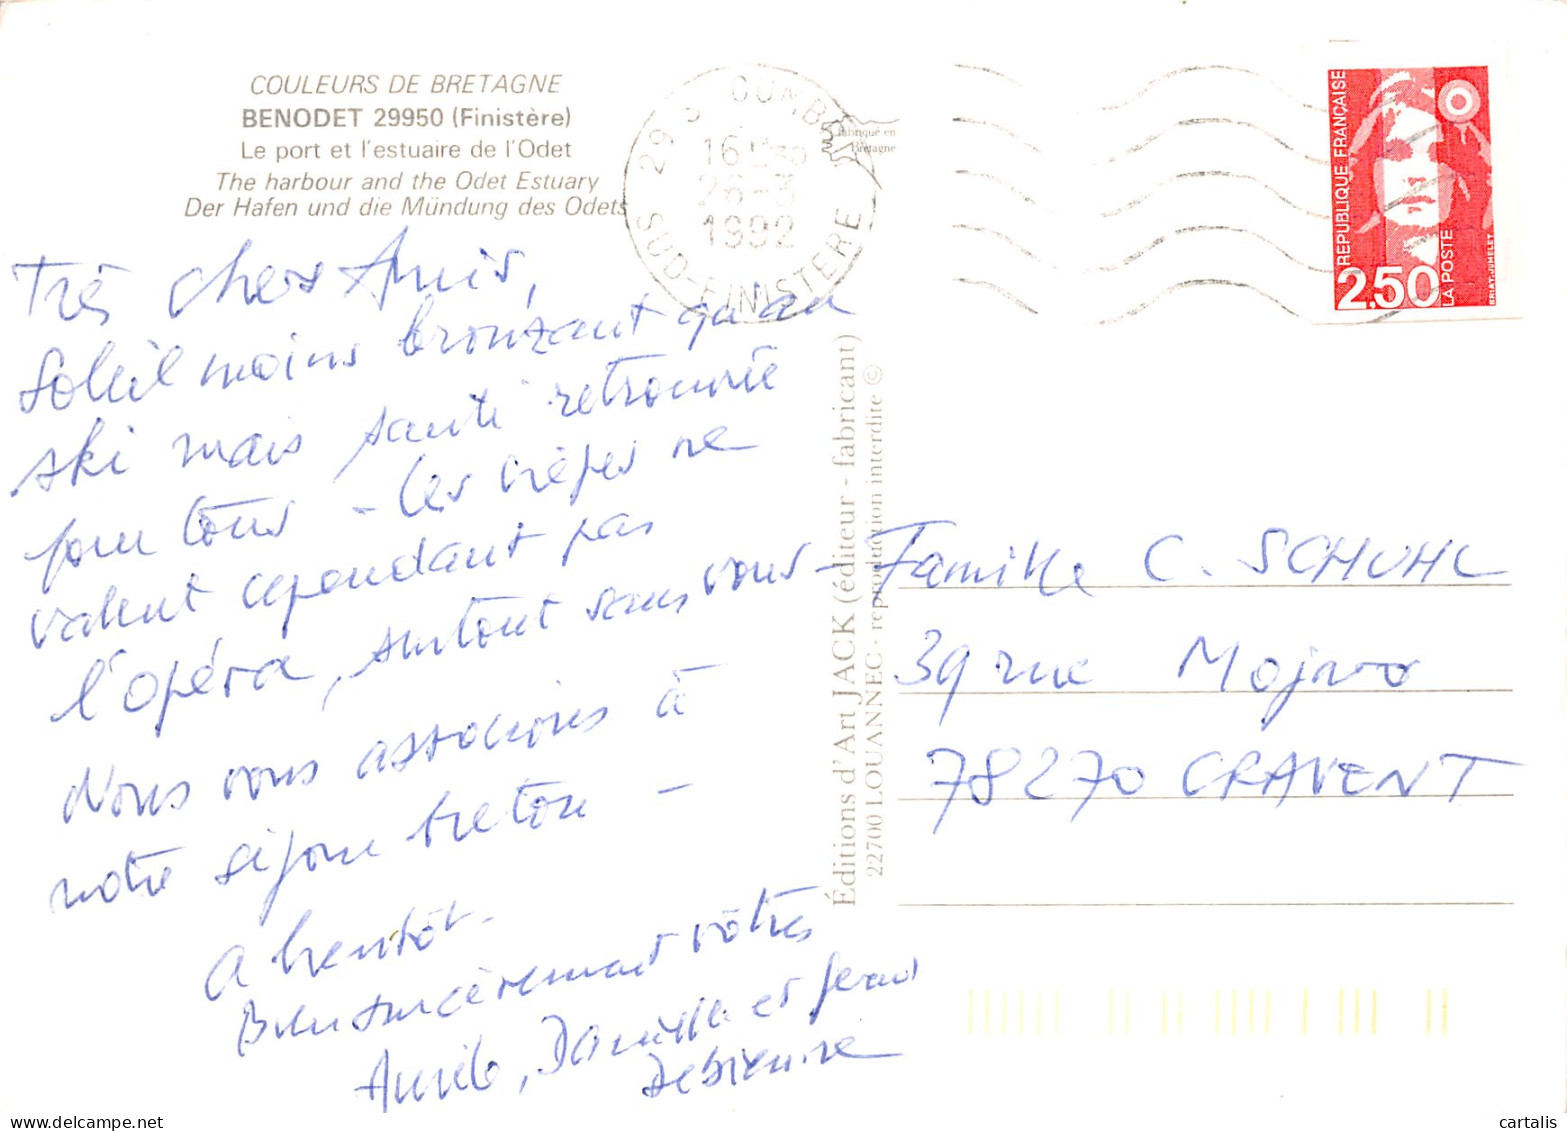 COULEURS DE BRETAGNE
BENODET 29950 (Finistère)
Le port et l'estuaire de l'Odet
The harbour and the Odet Estuary
Der Hafen und die Mündung des Odets
29 S COMB
16 H 30
1992
SUD-FINISTERE
Fabriqué en
Bretagne
REPUBLIQUE FRANÇAISE
2,50
LA POSTE
BRIAT-JUMELET
Très chers Amis,
Soleil moins bronzant qu'au
ski mais santé retrouvée
pour tous - les crêpes ne
valent cependant pas
l'opéra, surtout sans vous -
Nous vous associons à
notre séjour breton -
A bientôt.
Bien sincèrement vôtres
Danielle et
Éditions d'Art JACK (éditeur - fabricant)
22700 LOUANNEC - reproduction interdite ©
Famille C. SCHUHL
39 rue
78270 CRAVENT
cartalis
www.delcampe.net